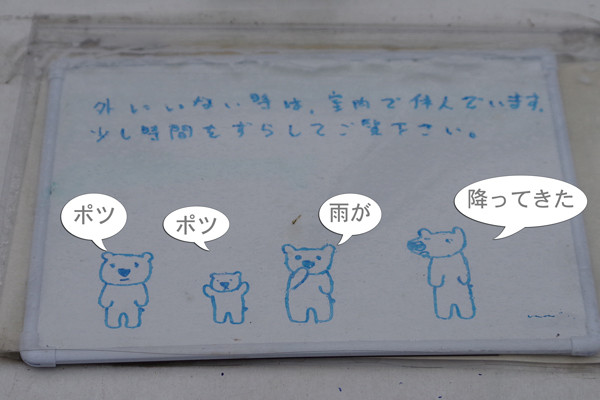 外にいない時は、室内で休んでいます。
少し時間をずらしてご覧下さい。
ポツ
ポツ
雨が
降ってきた